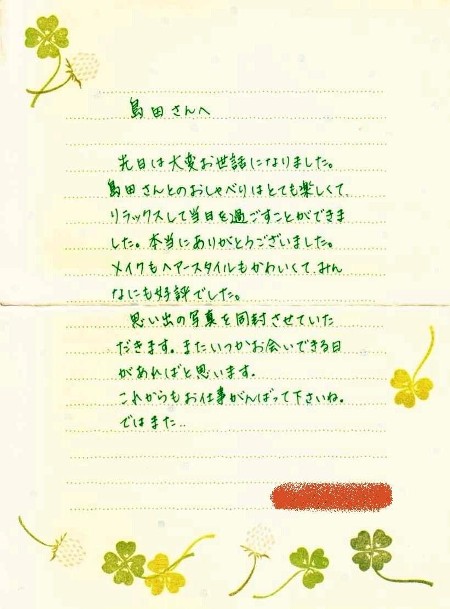 島田さんへ
先日は大変お世話になりました。
島田さんとのおしゃべりはとても楽しくて、
リラックスして当日を過ごすことができま
した。本当にありがとうございました。
メイクもヘアースタイルもかわいくて、みん
なにも好評でした。
思い出の写真を同封させていた
だきます。またいつかお会いできる日
があればと思います。
これからもお仕事がんばって下さいね。
ではまた..